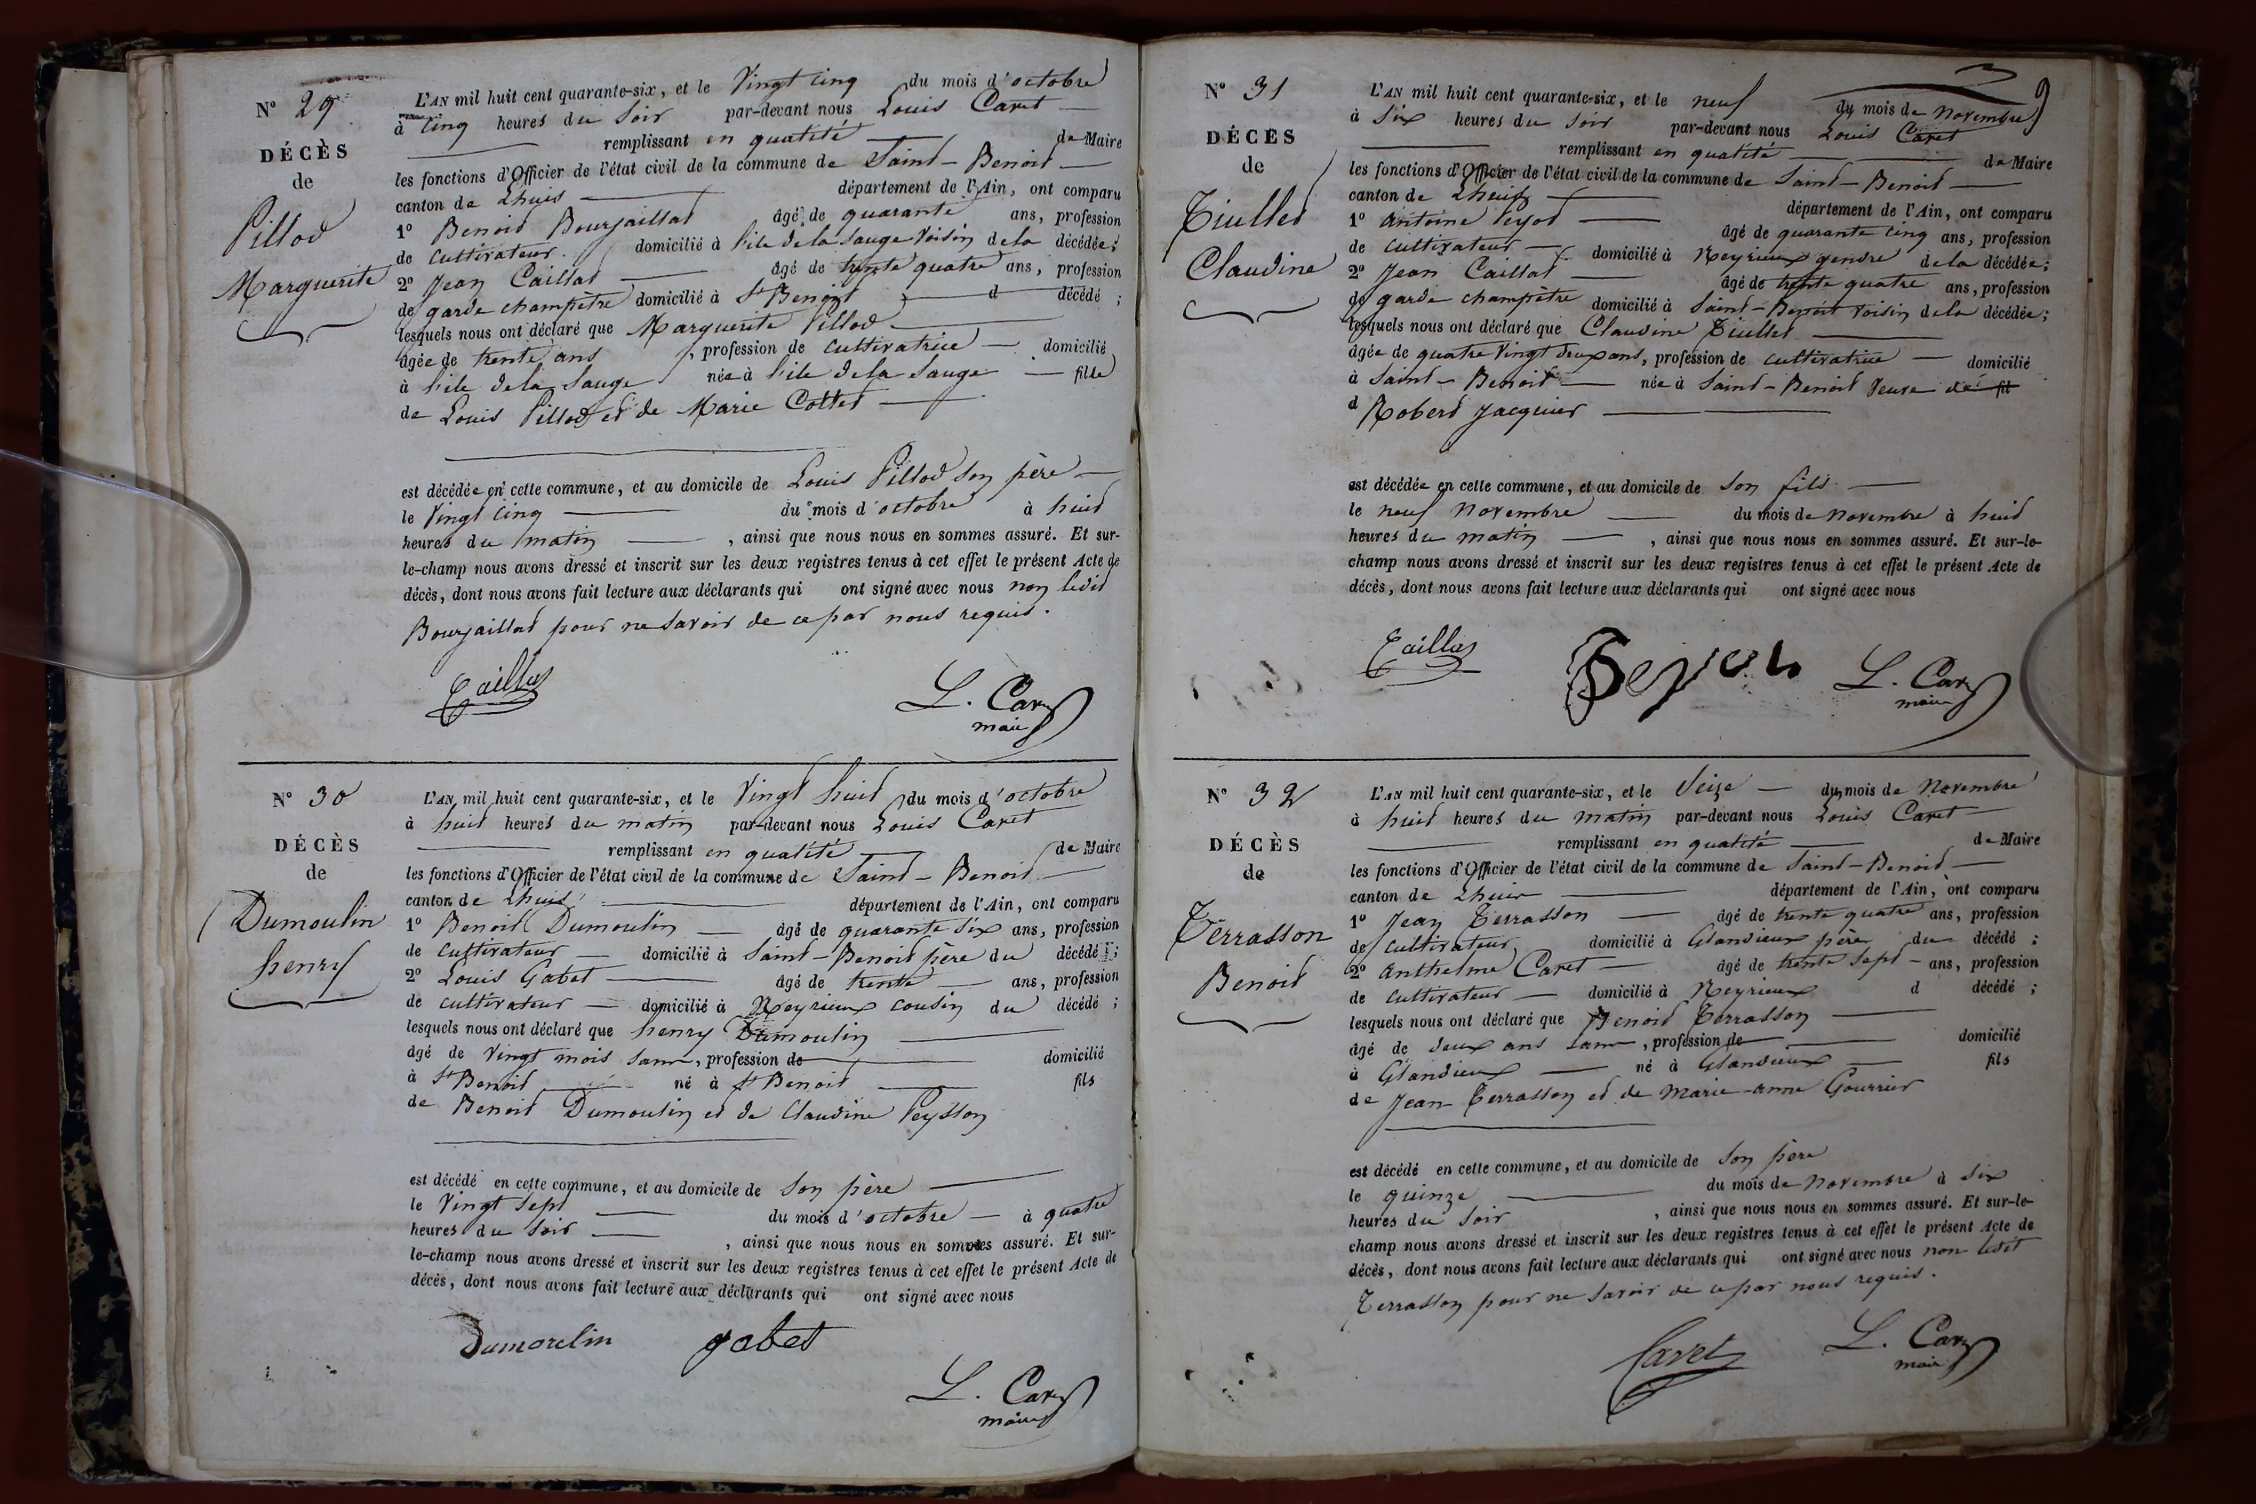 N° 29
DÉCÈS
de
Pillod
Marguerite
L'AN mil huit cent quarante-six, et le Vingt cinq du mois d'octobre
à cinq heures du Soir par-devant nous Louis Caret
remplissant en qualité de Maire
les fonctions d'Officier de l'état civil de la commune de Saint-Benoit
canton de Lhuis département de l'Ain, ont comparu
1° Benoit Bourjaillat âgé de quarante ans, profession
de cultivateur domicilié à l'ile de la Sauge Voisin de la décédée;
2° Jean Caillat âgé de trente quatre ans, profession
de garde champêtre domicilié à St Benoit d décédé ;
lesquels nous ont déclaré que Marguerite Pillod
âgée de trente ans, profession de cultivatrice domicilié
à l'ile de la Sauge née à l'ile de la Sauge fille
de Louis Pillod et de Marie Cottet
est décédée en cette commune, et au domicile de Louis Pillod son père
le Vingt cinq du mois d'octobre à huit
heures du matin , ainsi que nous nous en sommes assuré. Et sur-
le-champ nous avons dressé et inscrit sur les deux registres tenus à cet effet le présent Acte de
décès, dont nous avons fait lecture aux déclarants qui ont signé avec nous non ledit
Bourjaillat pour ne savoir de ce par nous requis.
Caillat
L. Caret
maire
N° 30
DÉCÈS
de
Dumoulin
henry
L'AN mil huit cent quarante-six, et le Vingt huit du mois d'octobre
à huit heures du matin par-devant nous Louis Caret
remplissant en qualité de Maire
les fonctions d'Officier de l'état civil de la commune de Saint-Benoit
canton de Lhuis département de l'Ain, ont comparu
1° Benoit Dumoulin âgé de quarante six ans, profession
de cultivateur domicilié à Saint-Benoit père du décédé ;
2° Louis Gabet âgé de trente ans, profession
de cultivateur domicilié à Neyrieux cousin du décédé ;
lesquels nous ont déclaré que henry Dumoulin
âgé de Vingt mois sans, profession de domicilié
à St Benoit né à St Benoit fils
de Benoit Dumoulin et de Claudine Peysson
est décédé en cette commune, et au domicile de Son père
le Vingt sept du mois d'octobre à quatre
heures du Soir , ainsi que nous nous en sommes assuré. Et sur-
le-champ nous avons dressé et inscrit sur les deux registres tenus à cet effet le présent Acte de
décès, dont nous avons fait lecture aux déclarants qui ont signé avec nous
Dumoulin gabet
L. Caret
maire
N° 31
DÉCÈS
de
Tiullet
Claudine
L'AN mil huit cent quarante-six, et le neuf du mois de Novembre
à Six heures du Soir par-devant nous Louis Caret
remplissant en qualité de Maire
les fonctions d'Officier de l'état civil de la commune de Saint-Benoit
canton de Lhuis département de l'Ain, ont comparu
1° Antoine âgé de quarante cinq ans, profession
de cultivateur domicilié à Neyrieux gendre de la décédée;
2° Jean Caillat âgé de trente quatre ans, profession
de garde champêtre domicilié à Saint-Benoit Voisin de la décédée;
lesquels nous ont déclaré que Claudine Tiullet
âgée de quatre Vingt deux ans, profession de cultivatrice domicilié
à Saint-Benoit née à Saint-Benoit Veuve de fil
d Robert Jacquier
est décédée en cette commune, et au domicile de Son fils
le neuf Novembre du mois de Novembre à huit
heures du matin , ainsi que nous nous en sommes assuré. Et sur-le-
champ nous avons dressé et inscrit sur les deux registres tenus à cet effet le présent Acte de
décès, dont nous avons fait lecture aux déclarants qui ont signé avec nous
Caillat L. Caret
maire
N° 32
DÉCÈS
de
Terrasson
Benoit
L'AN mil huit cent quarante-six, et le Seize du mois de Novembre
à huit heures du matin par-devant nous Louis Caret
remplissant en qualité de Maire
les fonctions d'Officier de l'état civil de la commune de Saint-Benoit
canton de Lhuis département de l'Ain, ont comparu
1° Jean Terrasson âgé de trente quatre ans, profession
de cultivateur domicilié à Glandieux père du décédé ;
2° Anthelme Caret âgé de trente Sept ans, profession
de cultivateur domicilié à Neyrieux d décédé ;
lesquels nous ont déclaré que Benoit Terrasson
âgé de deux ans sans, profession de domicilié
à Glandieux né à Glandieux fils
de Jean Terrasson et de Marie-anne Gourrier
est décédé en cette commune, et au domicile de Son père
le quinze du mois de Novembre à Six
heures du Soir , ainsi que nous nous en sommes assuré. Et sur-le-
champ nous avons dressé et inscrit sur les deux registres tenus à cet effet le présent Acte de
décès, dont nous avons fait lecture aux déclarants qui ont signé avec nous non ledit
Terrasson pour ne savoir de ce par nous requis.
Caret L. Caret
maire